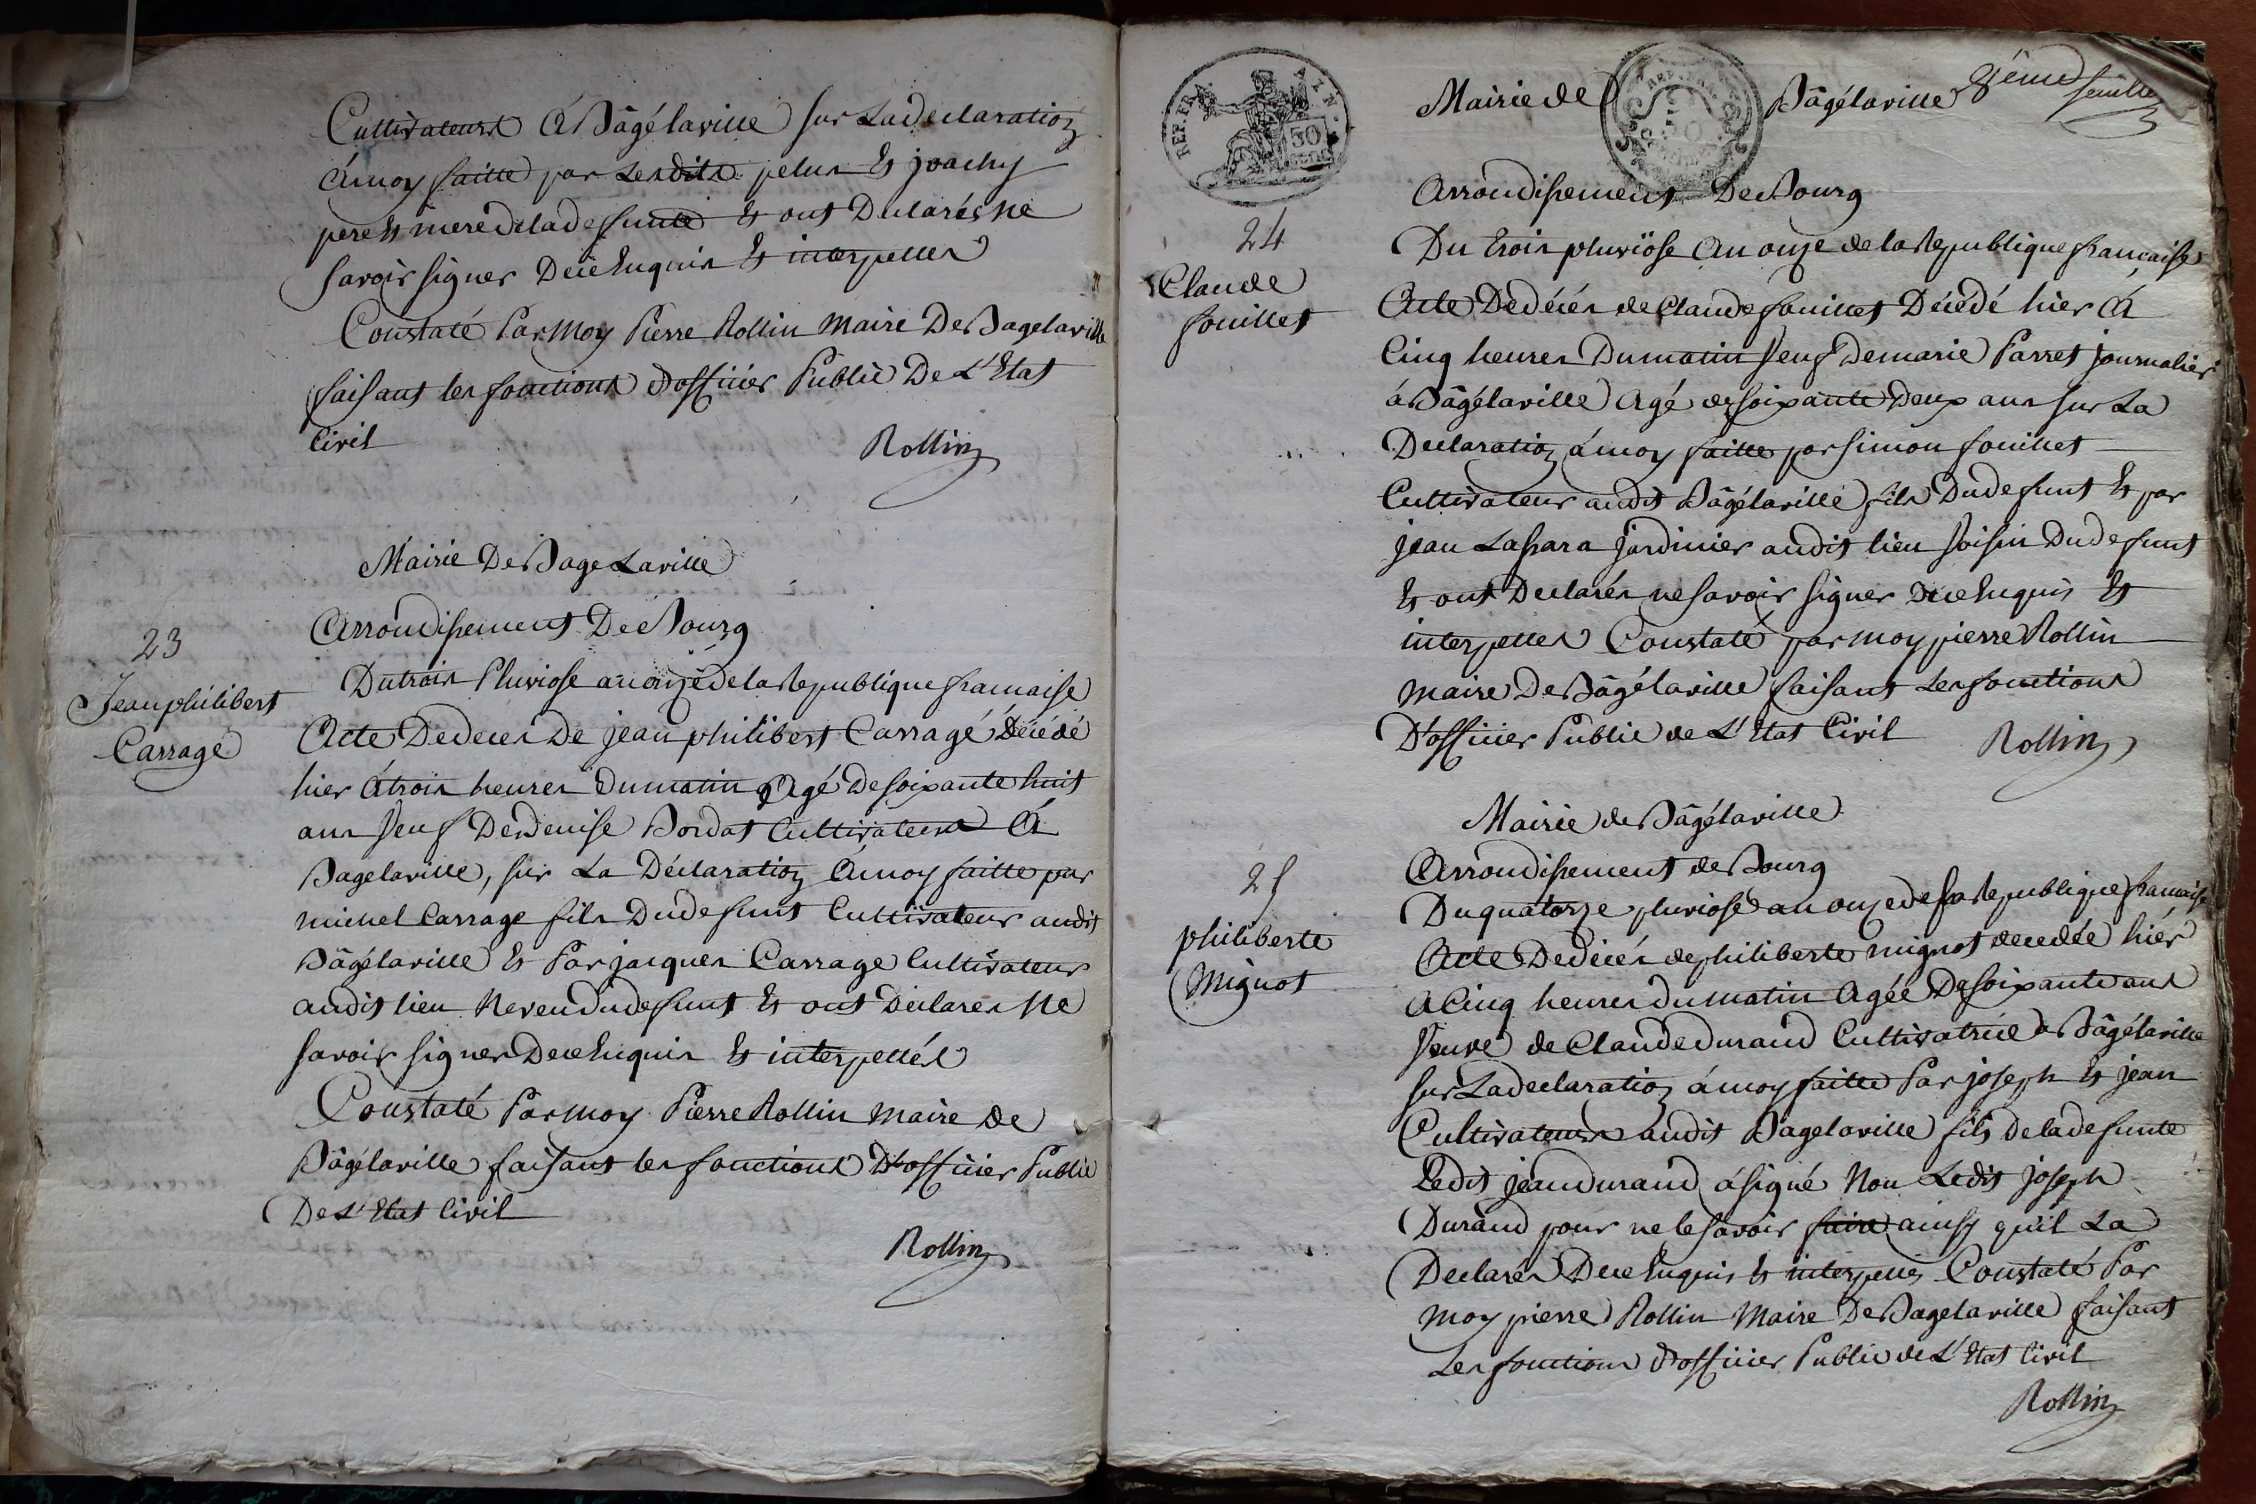 Cultivateurs à Bâgélaville sur La declaration
à moy faitte par Lesdits pelus & joachy
pere & mere de la defunte & ont Declarés ne
savoir signer De ce Enquis & interpellés
Constaté Par Moy Pierre Rollin Maire De Bagelaville
faisant les fonctions d'officier Public De L'Etat
Civil
Rollin
Mairie De Bage Laville
Arrondissement De Bourg
23
Jean philibert
Carragé
Du trois Pluviose an onze de la Republique francaise
Acte De deces De jean philibert Carragé Décédé
hier à trois heures du matin Agé De soixante huit
ans veuf De Denise Bordat Cultivateur à
Bagelaville, sur La Déclaration à moy faitte par
michel Carrage fils Du defunt Cultivateur audit
Bâgélaville & Par jacques Carrage Cultivateur
audit lieu Neveu du defunt & ont Déclarés Ne
savoir signer De ce Enquis & interpellés
Constaté Par Moy Pierre Rollin Maire de
Bâgélaville faisant les fonctions D'officier Public
De L'Etat Civil
Rollin
REP. FRA
30
CENT
Mairie de Bâgélaville
feuille
Arrondissement De Bourg
24
Claude
fouillet
Du trois pluviöse an onze de la Republique francaise
Acte De décés de Claude fouillet Décédé hier à
Cinq heures Du matin veuf De marie Parret journalier
à Bâgélaville Agé de soixante Deux ans sur La
Declaration à moy faitte par simon fouillet
Cultivateur audit Bâgélaville fils Du defunt & par
jean Lassara jardinier audit lieu voisin Du defunt
& ont Declarés ne savoir signer De ce Enquis &
interpellés Constaté par moy pierre Rollin
maire De Bâgélaville faisant Les fonctions
D'officier Public de L'Etat Civil
Rollin
Mairie de Bâgélaville
Arrondissement de Bourg
25
philiberte
Mignot
Du quatorze pluviose an onze de la Republique francaise
Acte De décés de philiberte mignot decedée hiér
à Cinq heures du matin Agée De soixante ans
veuve de Claude durand Cultivatrice à Bâgélaville
sur La declaration à moy faitte Par joseph & jean
Cultivateurs audit Bagelaville fils De la defunte
Ledit jean durand à signé Non Ledit joseph
Durand pour ne le savoir faire ainsy qu'il La
Declarés De ce Enquis & interpellés Constaté Par
moy pierre Rollin Maire De Bagelaville faisant
Les fonctions d'officier Public de L'Etat Civil
Rollin